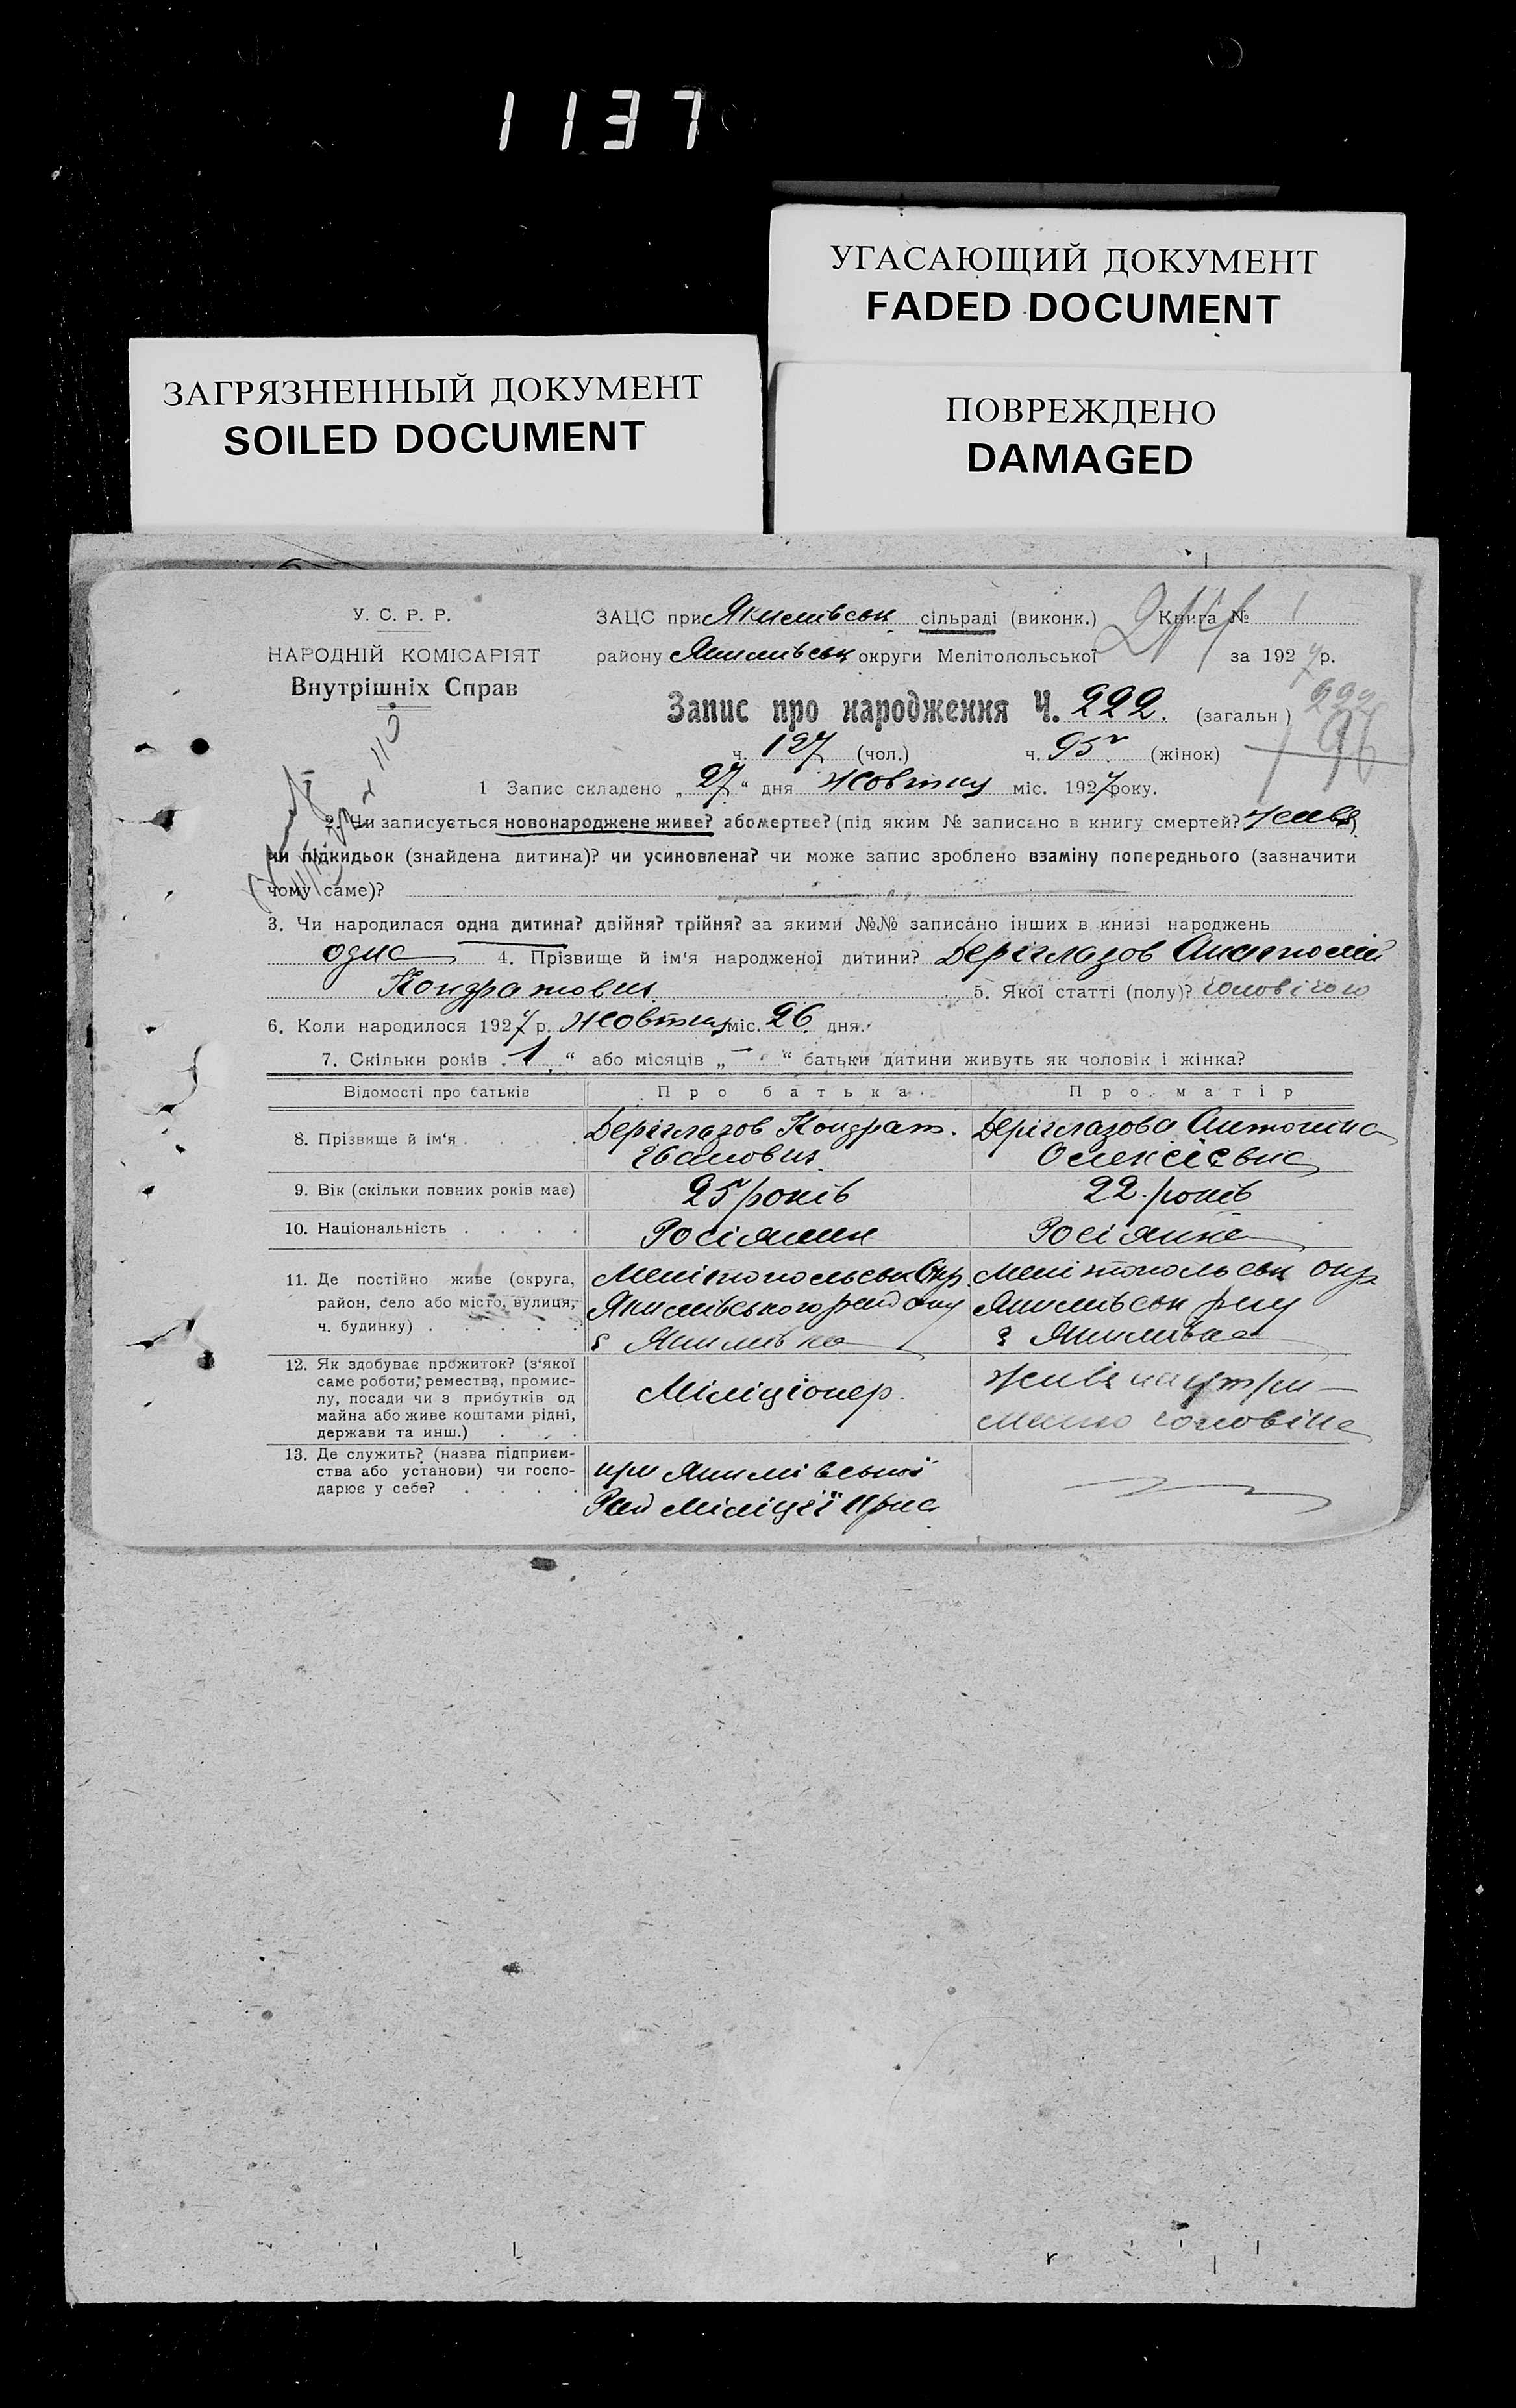 1137
УГАСАЮЩИЙ ДОКУМЕНТ
FADED DOCUMENT
ЗАГРЯЗНЕННЫЙ ДОКУМЕНТ
SOILED DOCUMENT
ПОВРЕЖДЕНО
DAMAGED
У. С. Р. Р.
НАРОДНІЙ КОМІСАРІЯТ
Внутрішніх Справ
ЗАЦС при Якимівськ сільраді (виконк.) Книга № 1
району Якимівськ округи Мелітопольської за 1927 р.
Запис про народження Ч. 222. (загальн)
222
96
ч. 127 (чол.) ч. 95 (жінок)
1 Запис складено „27“ дня жовтня міс. 1927 року.
2. Чи записується новонароджене живе? або мертве? (під яким № записано в книгу смертей? живе)
чи підкидьок (знайдена дитина)? чи усиновлена? чи може запис зроблено взаміну попереднього (зазначити
чому саме)?
3. Чи народилася одна дитина? двійня? трійня? за якими №№ записано інших в книзі народжень
одна 4. Прізвище й ім‘я народженої дитини? Деріглазов Анатолій
Кондратович 5. Якої статті (полу)? чоловічого
6. Коли народилося 1927 р. жовтня міс. 26 дня.
7. Скільки років „1“ або місяців „—“ батьки дитини живуть як чоловік і жінка?
Відомості про батьків Про батька Про матір
8. Прізвище й ім‘я . . . . . Деріглазов Кондрат. Деріглазова Антоніна
Іванович Олексієвна
9. Вік (скільки повних років має) 25 років 22 років
10. Національність . . . . Росіянин Росіянка
11. Де постійно живе (округа, Мелітопольськ Окр. Мелітопольськ окр
район, село або місто, вулиця, Якимівського району Якимівськ рну
ч. будинку) . . . . с Якимівка с Якимівка
12. Як здобуває прожиток? (з‘якої
саме роботи, ремества, промис-
лу, посади чи з прибутків од
майна або живе коштами рідні,
держави та инш.) . . .
Міліціонер. Живе на утри-
манню чоловіка
13. Де служить? (назва підприєм-
ства або установи) чи госпо-
дарює у себе? . . . .
при Якимівської
Рай Міліції